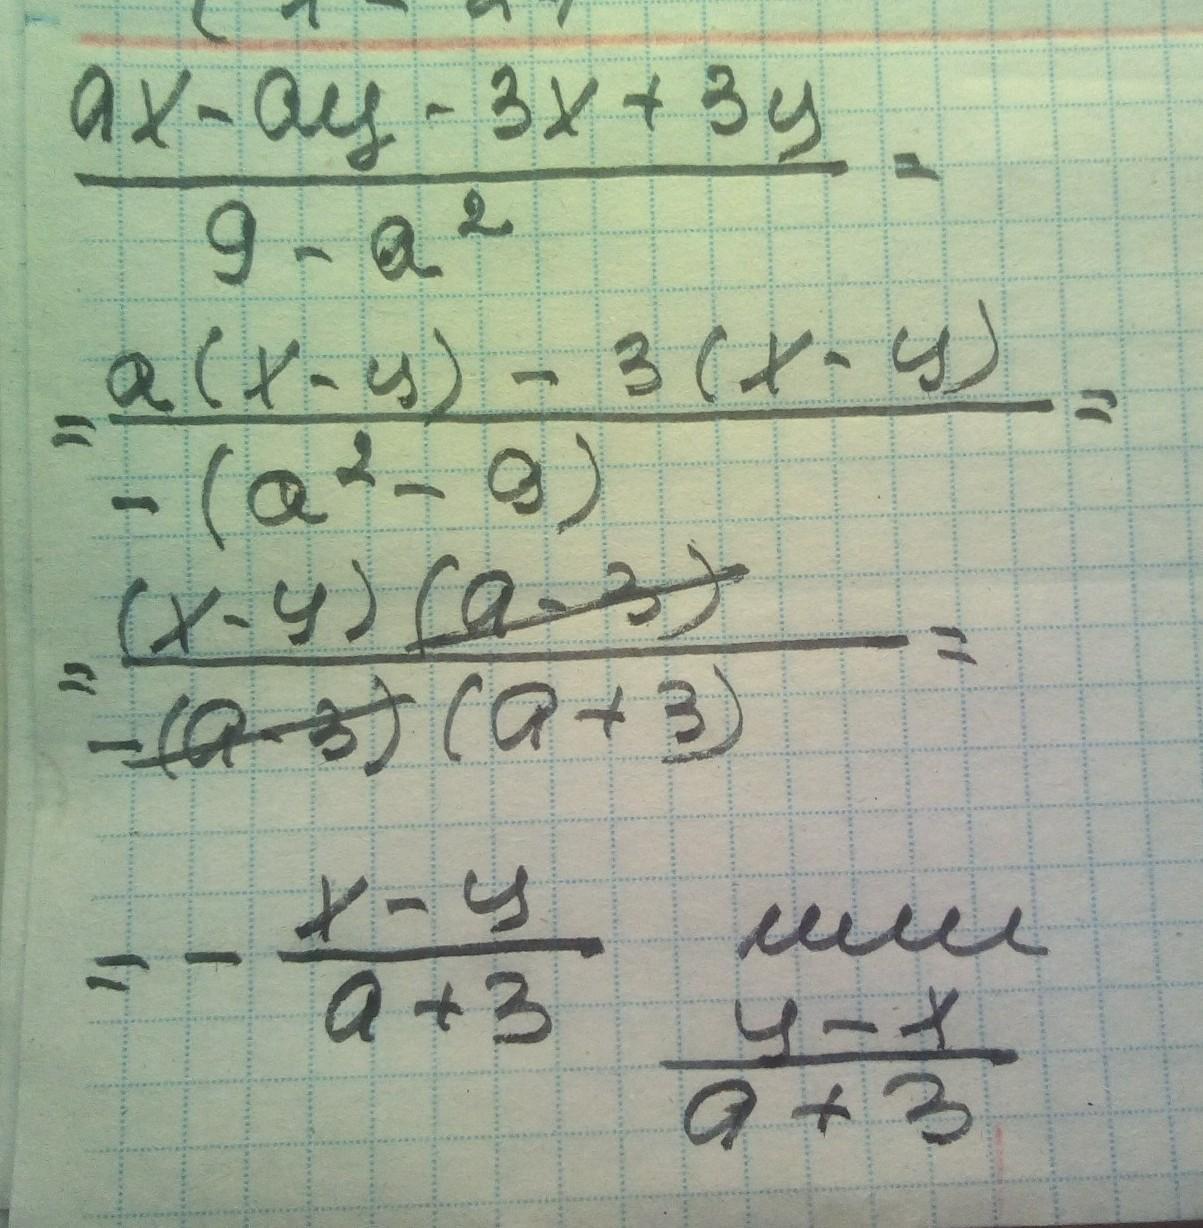 ax - ay - 3x + 3y
=
9 - a²
= a(x - y) - 3(x - y) =
-(a² - 9)
= (x - y)(a - 3) =
-(a - 3)(a + 3)
= - x - y или
a + 3
y - x
a + 3